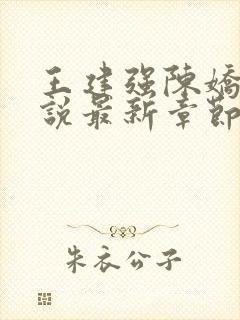 王建强陳嬌
說最新章節
朱衣公子